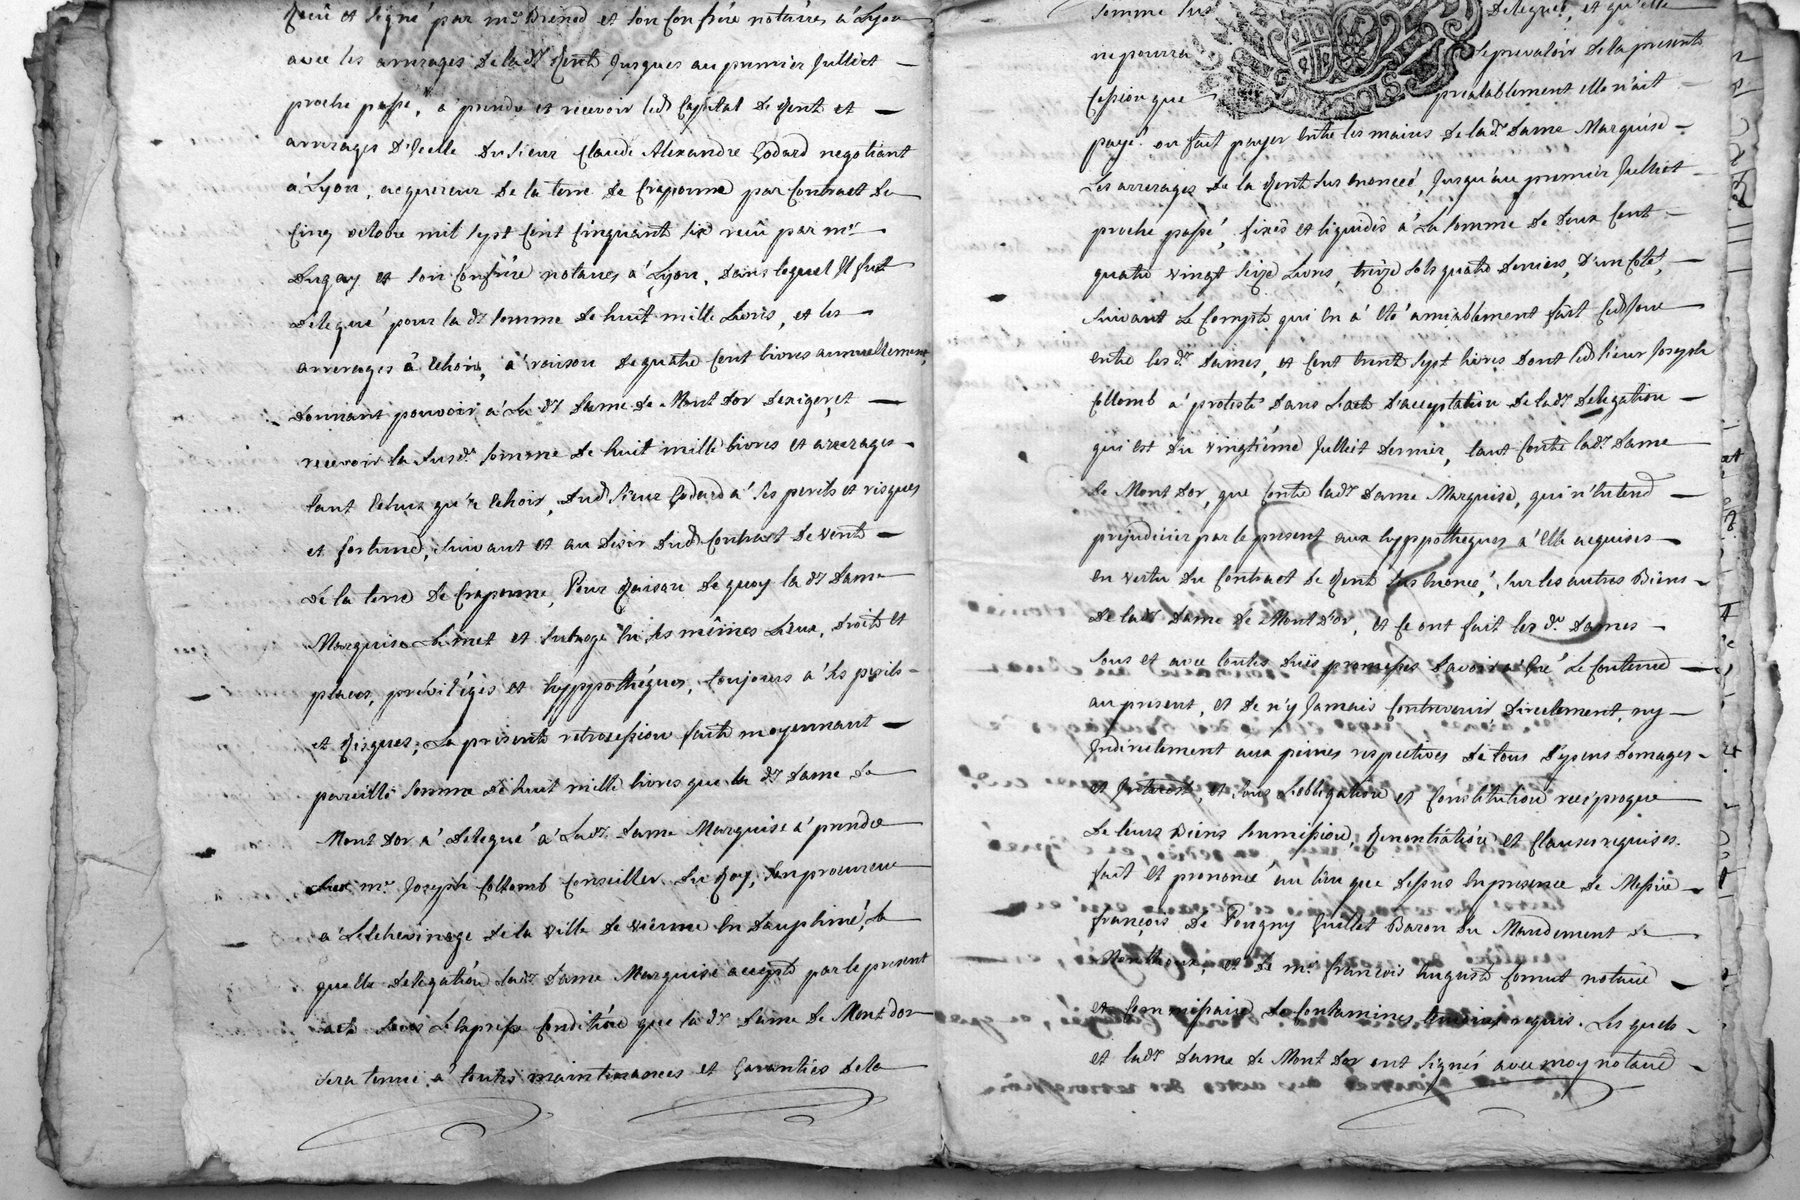 Reçu et signé par me Brenod et son Confrère notaires à Lyon
avec les arrerages de lad.e Rente Jusques au premier Julliet
proche passé, a prendre et recevoir led.t Capital de Rente et
arrerages d'Icelle du sieur Claude Alexandre Godard negotiant
à Lyon, acquereur de la terre de Craponne par Contract du
Cinq octobre mil sept Cent Cinquante six reçû par me
Dugay et son Confrère notaires à Lyon, dans lequel Il fut
délégué pour la d.e somme de huit mille Livres, et les
arrerages à Echoir, à raison de quatre Cent livres annuellement,
donnant pouvoir à La d.e Dame de Mont dor d'exiger, et
recevoir la susd.e somme de huit mille livres et arrerages
tant Echus qu'à Echoir, dud sieur Godard à ses perils et risques
et fortune, suivant et au desir dud Contract de vente
de la terre de Craponne, Pour Raison de quoy la d.e Dame
Marquise La met et subroge en ses mêmes Lieux, droits et
places, privilégés et hyppothéques, toujours à ses perils
et Risques; La présente retrocession faite moyennant
pareille somme de huit mille livres que la d.e Dame de
Mont dor à delegué à Lad.e Dame Marquise à prendre
sur me Joseph Collomb Conseiller du Roy, son procureur
a L'Echevinage de la ville de vienne en Dauphiné, la
quelle delegation lad.e Dame Marquise accepte par le present
acte sous L'Expresse Condition que la d.e Dame de Mont dor
sera tenue à toutes maintenances et Garanties de la
somme sus deleguée, et qu'elle
ne pourra se prevaloir de la presente
Cession que préalablement elle n'ait
payé ou fait payer entre les mains de la d.e Dame Marquise
Les arrerages de la Rente sus énoncée, Jusqu'au premier Julliet
proche passé, fixés et liquidés à La somme de deux Cent
quatre vingt seize Livres, treize sols quatre deniers, d'un Coté,
suivant Le Compte qui en à été amiablement fait Cejourd'huy
entre les d.es Dames, et Cent trente sept livres dont led sieur Joseph
Collomb à protesté dans L'acte d'acceptation de lad.e delegation
qui est du vingtiéme Julliet dernier, tant Contre lad.e Dame
de Mont dor, que Contre lad.e Dame Marquise, qui n'Entend
prejudicier par le present aux hyppotheques a Elle acquises
en vertu du Contract de Rente sus énoncé, sur les autres Biens
de lad.e Dame de Mont d'or, et Ce ont fait les d.es Dames
sous et avec toutes dües promesses d'avoir à Gré Le Contenu
au present, et de n'y Jamais Contrevenir directement, ny
Indirectement aux peines respectives de tous depens domages
et Interests, et sous L'obligation et Constitution reciproque
de leurs Biens soumission, Renontiation et Clauses requises.
fait et prononcé au lieu que dessus En presence de Messire
françois de Pougny Guillet Baron du Mandement de
Monthoux, et de me francois auguste Cornut notaire
et Commissaire de Contamines temoins requis. Les quels
et lad.e Dame de Mont dor ont signés avec moy notaire